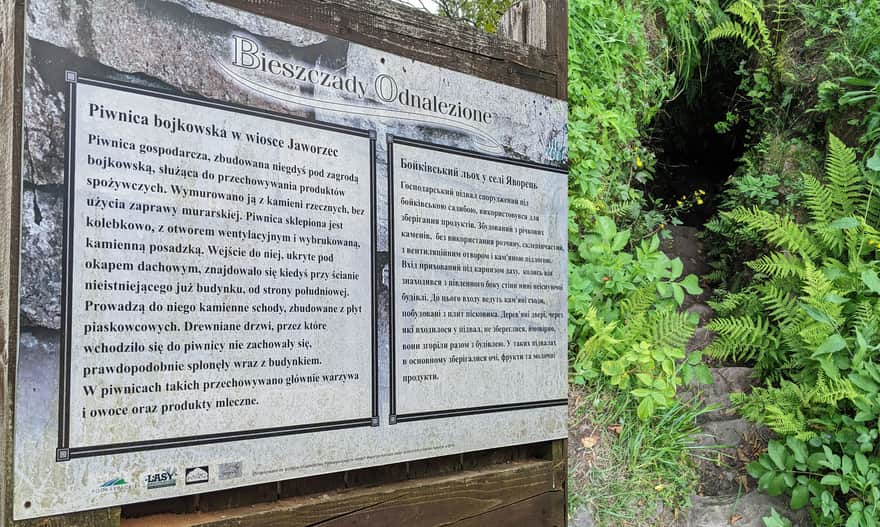 Bieszczady Odnalezione
Piwnica bojkowska w wiosce Jaworzec
Piwnica gospodarcza, zbudowana niegdyś pod zagrodą
bojkowską, służąca do przechowywania produktów
spożywczych. Wymurowano ją z kamieni rzecznych, bez
użycia zaprawy murarskiej. Piwnica sklepiona jest
kolebkowo, z otworem wentylacyjnym i wybrukowaną,
kamienną posadzką. Wejście do niej, ukryte pod
okapem dachowym, znajdowało się kiedyś przy ścianie
nieistniejącego już budynku, od strony południowej.
Prowadzą do niego kamienne schody, zbudowane z płyt
piaskowcowych. Drewniane drzwi, przez które
wchodziło się do piwnicy nie zachowały się,
prawdopodobnie spłonęły wraz z budynkiem.
W piwnicach takich przechowywano głównie warzywa
i owoce oraz produkty mleczne.
Бойківський льох у селі Яворець
Господарський підвал споруджений під
бойківською садибою, використовувся для
зберігання продуктів. Збудований з річкових
каменів, без використання розчину, склепінчастий,
з вентиляційним отвором і кам'яною підлогою.
Вхід прихований під карнизом даху, колись він
знаходився з південного боку стіни нині неіснуючої
будівлі. До цього входу ведуть кам'яні сходи,
побудовані з плит пісковика. Дерев'яні двері, через
які входилося у підвал, не збереглися, ймовірно,
вони згоріли разом з будівлею. У таких підвалах
в основному зберігалися очі, фрукти та молочні
продукти.
LASY